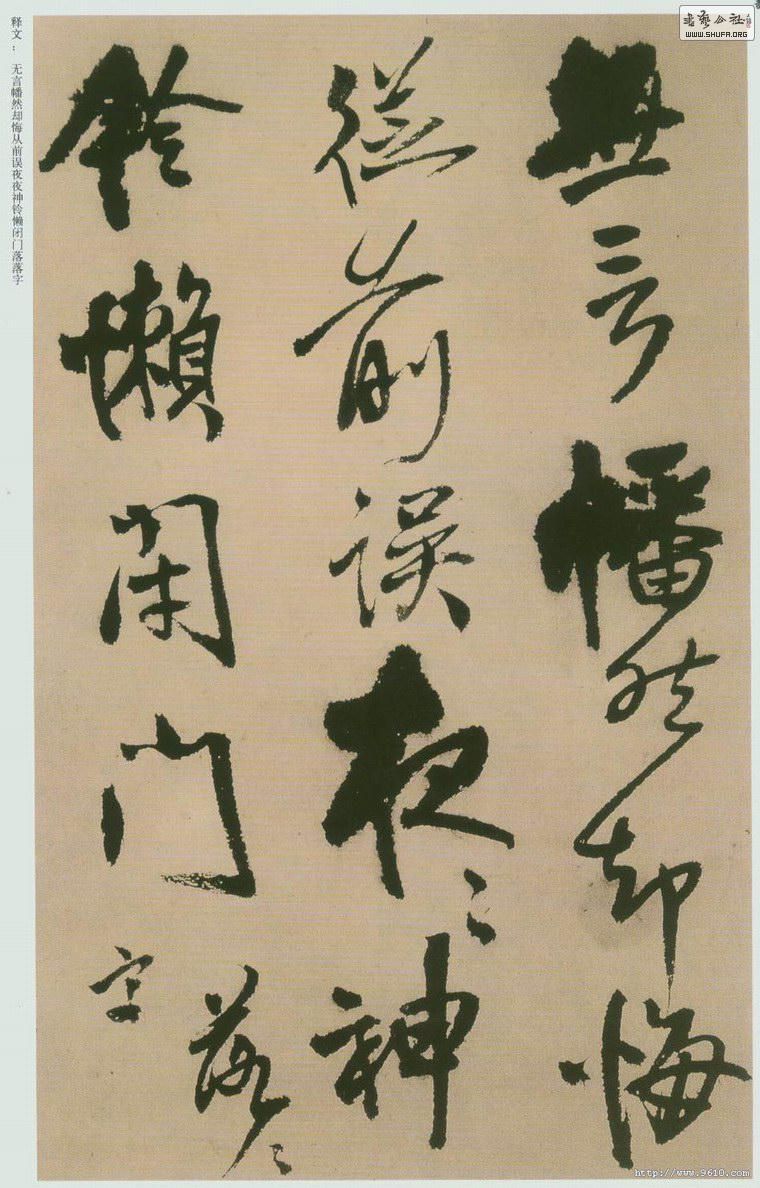 書藝公社
WWW.SHUFA.ORG
無言幡然却悔
從前誤夜〻神
鈴懶閉門落〻
字
释文： 无言幡然却悔从前误夜夜神铃懒闭门落落字
http://www.9610.com